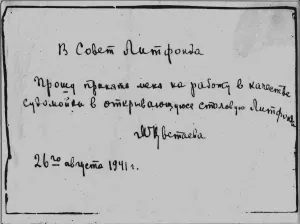 В Совет Литфонда
Прошу принять меня на работу в качестве
судомойки в открывающуюся столовую Литфонда.
МЦветаева
26го августа 1941 г.